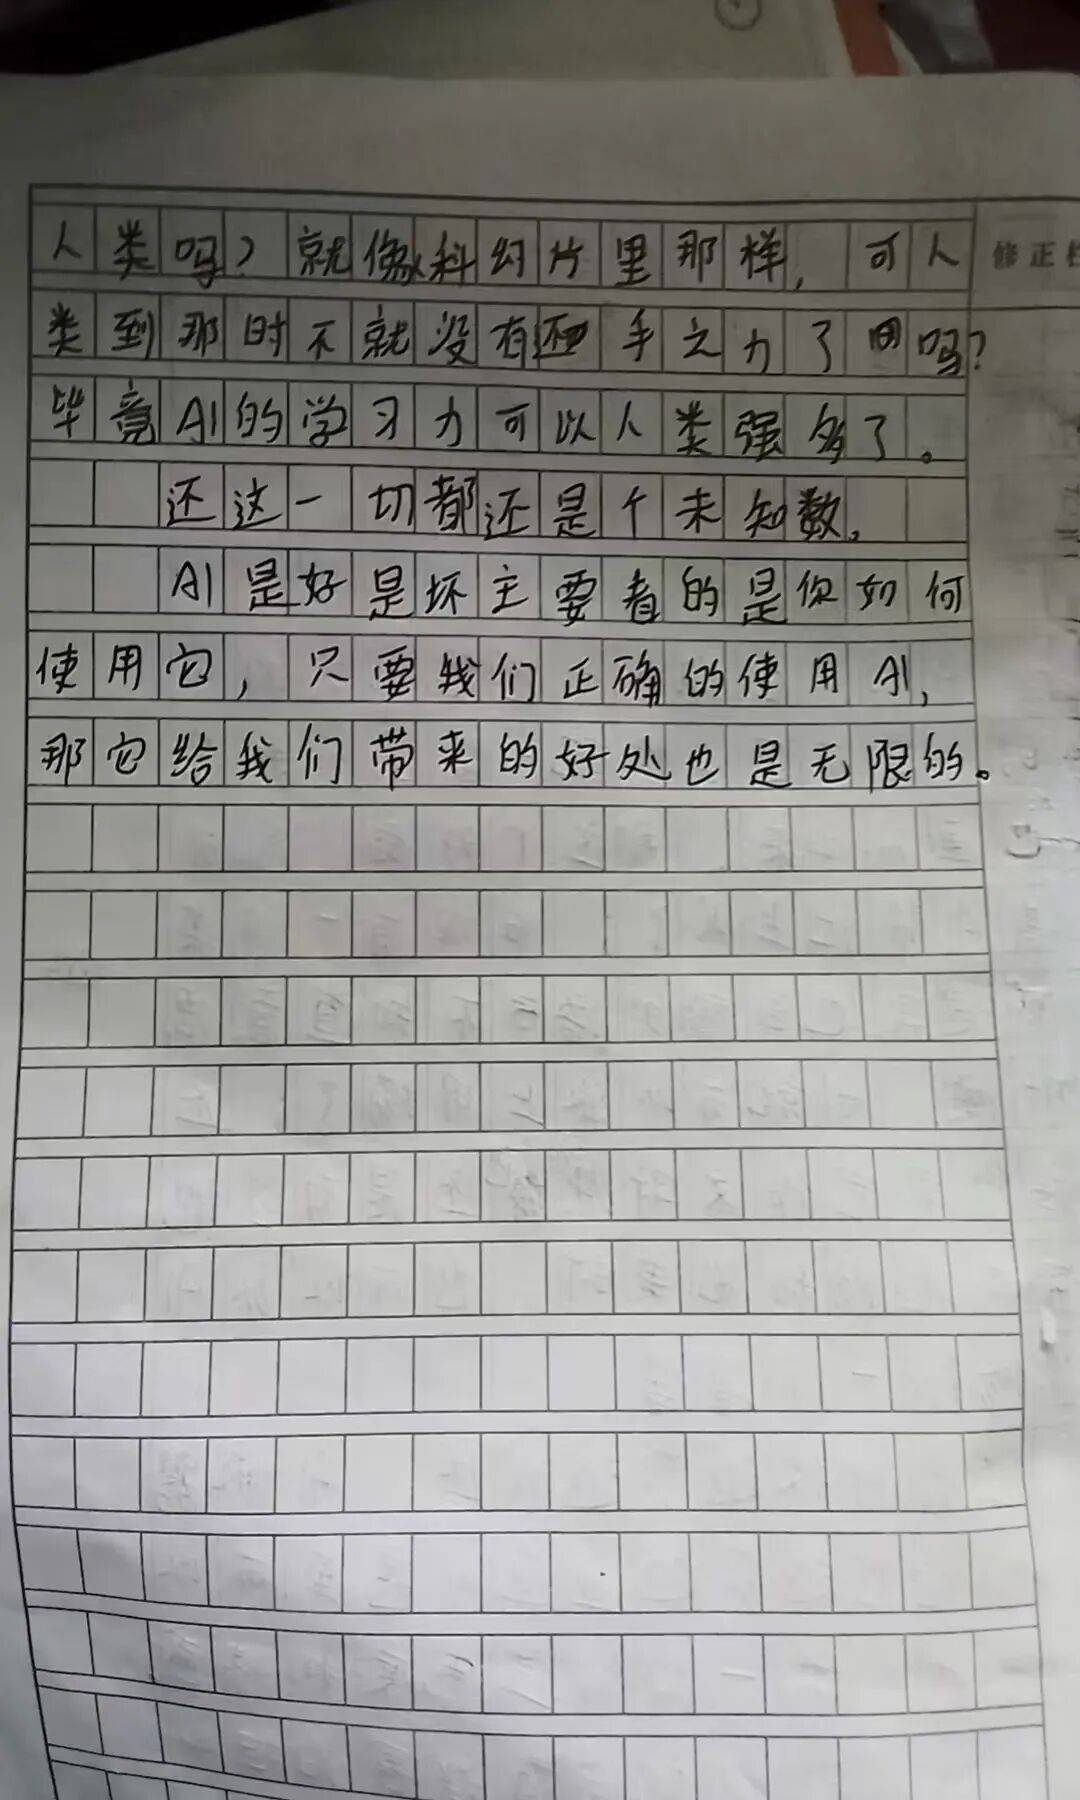 人类吗？就像科幻片里那样，可人
修正栏
类到那时不就没有还手之力了吗？
毕竟AI的学习力可以人类强多了。
还这一切都还是个未知数。
AI是好是坏主要看的是你如何
使用它，只要我们正确的使用AI，
那它给我们带来的好处也是无限的。